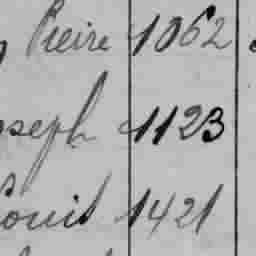 Pierre 1062
Joseph 1123
Louis 1421